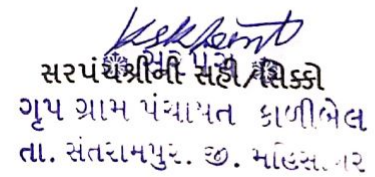 સરપંચ
સરપંચશ્રીની સહી/સિક્કો
ગૃપ ગ્રામ પંચાયત કાળીબેલ
તા. સંતરામપુર. જી. મહિસાગર